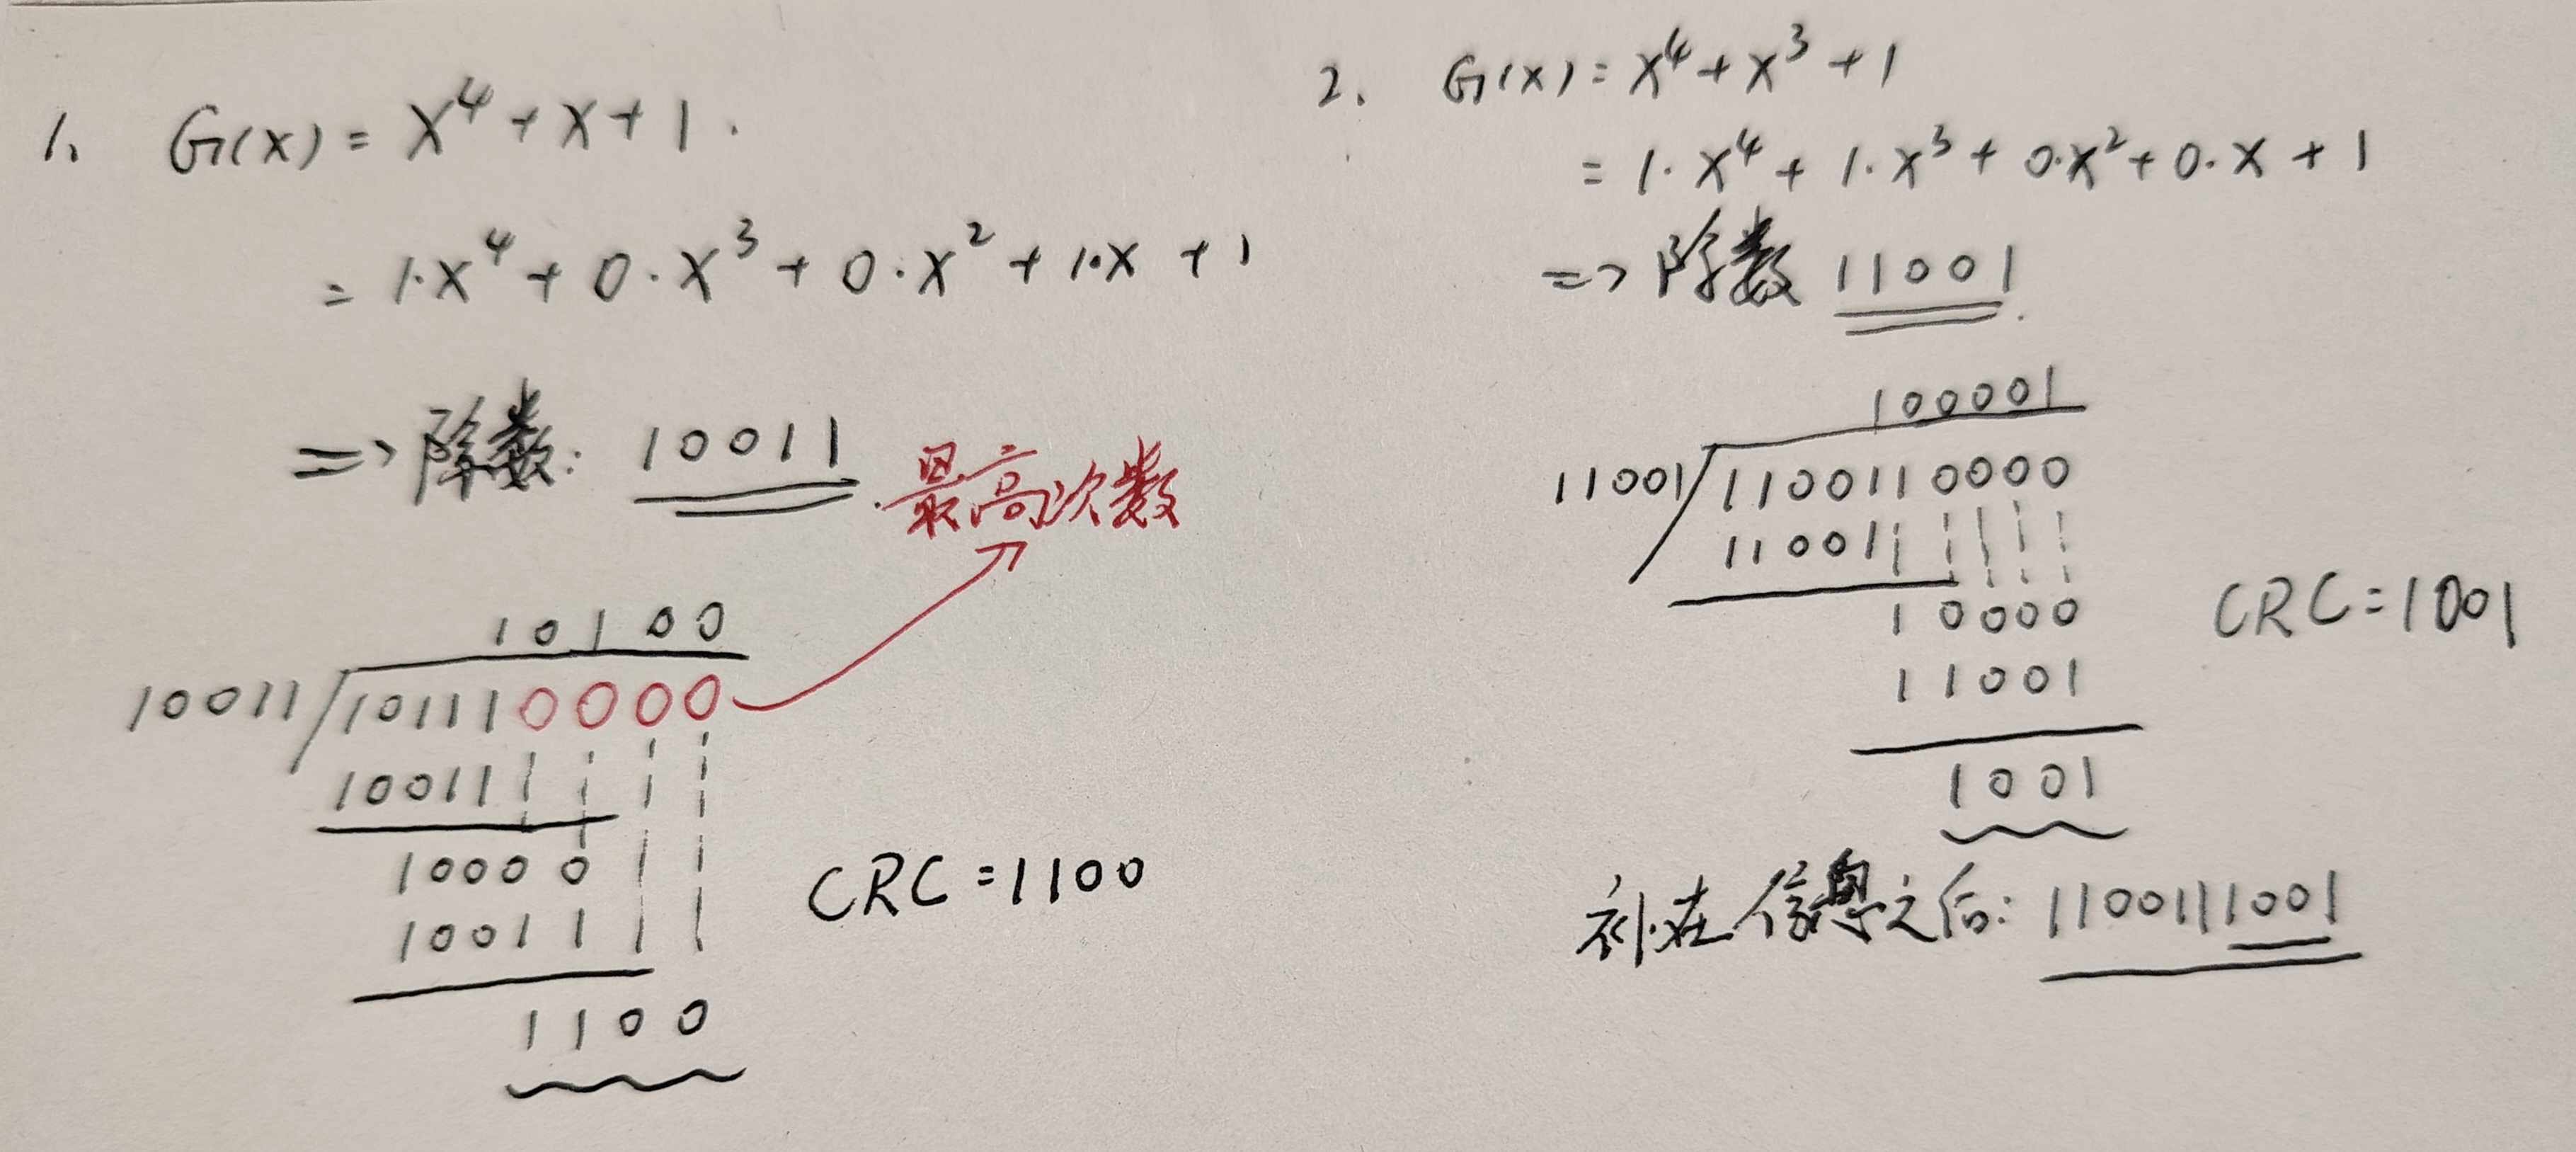 1、 G(x) = x⁴ + x + 1 .
= 1·x⁴ + 0·x³ + 0·x² + 1·x + 1
=> 除数: 10011
最高次数
10100
10011 101110000
10011
10000
10011
1100
CRC=1100
2、 G(x) = x⁴ + x³ + 1
= 1·x⁴ + 1·x³ + 0·x² + 0·x + 1
=> 除数 11001 .
100001
11001 1100110000
11001
10000
11001
1001
CRC=1001
补在信息之后: 1100111001